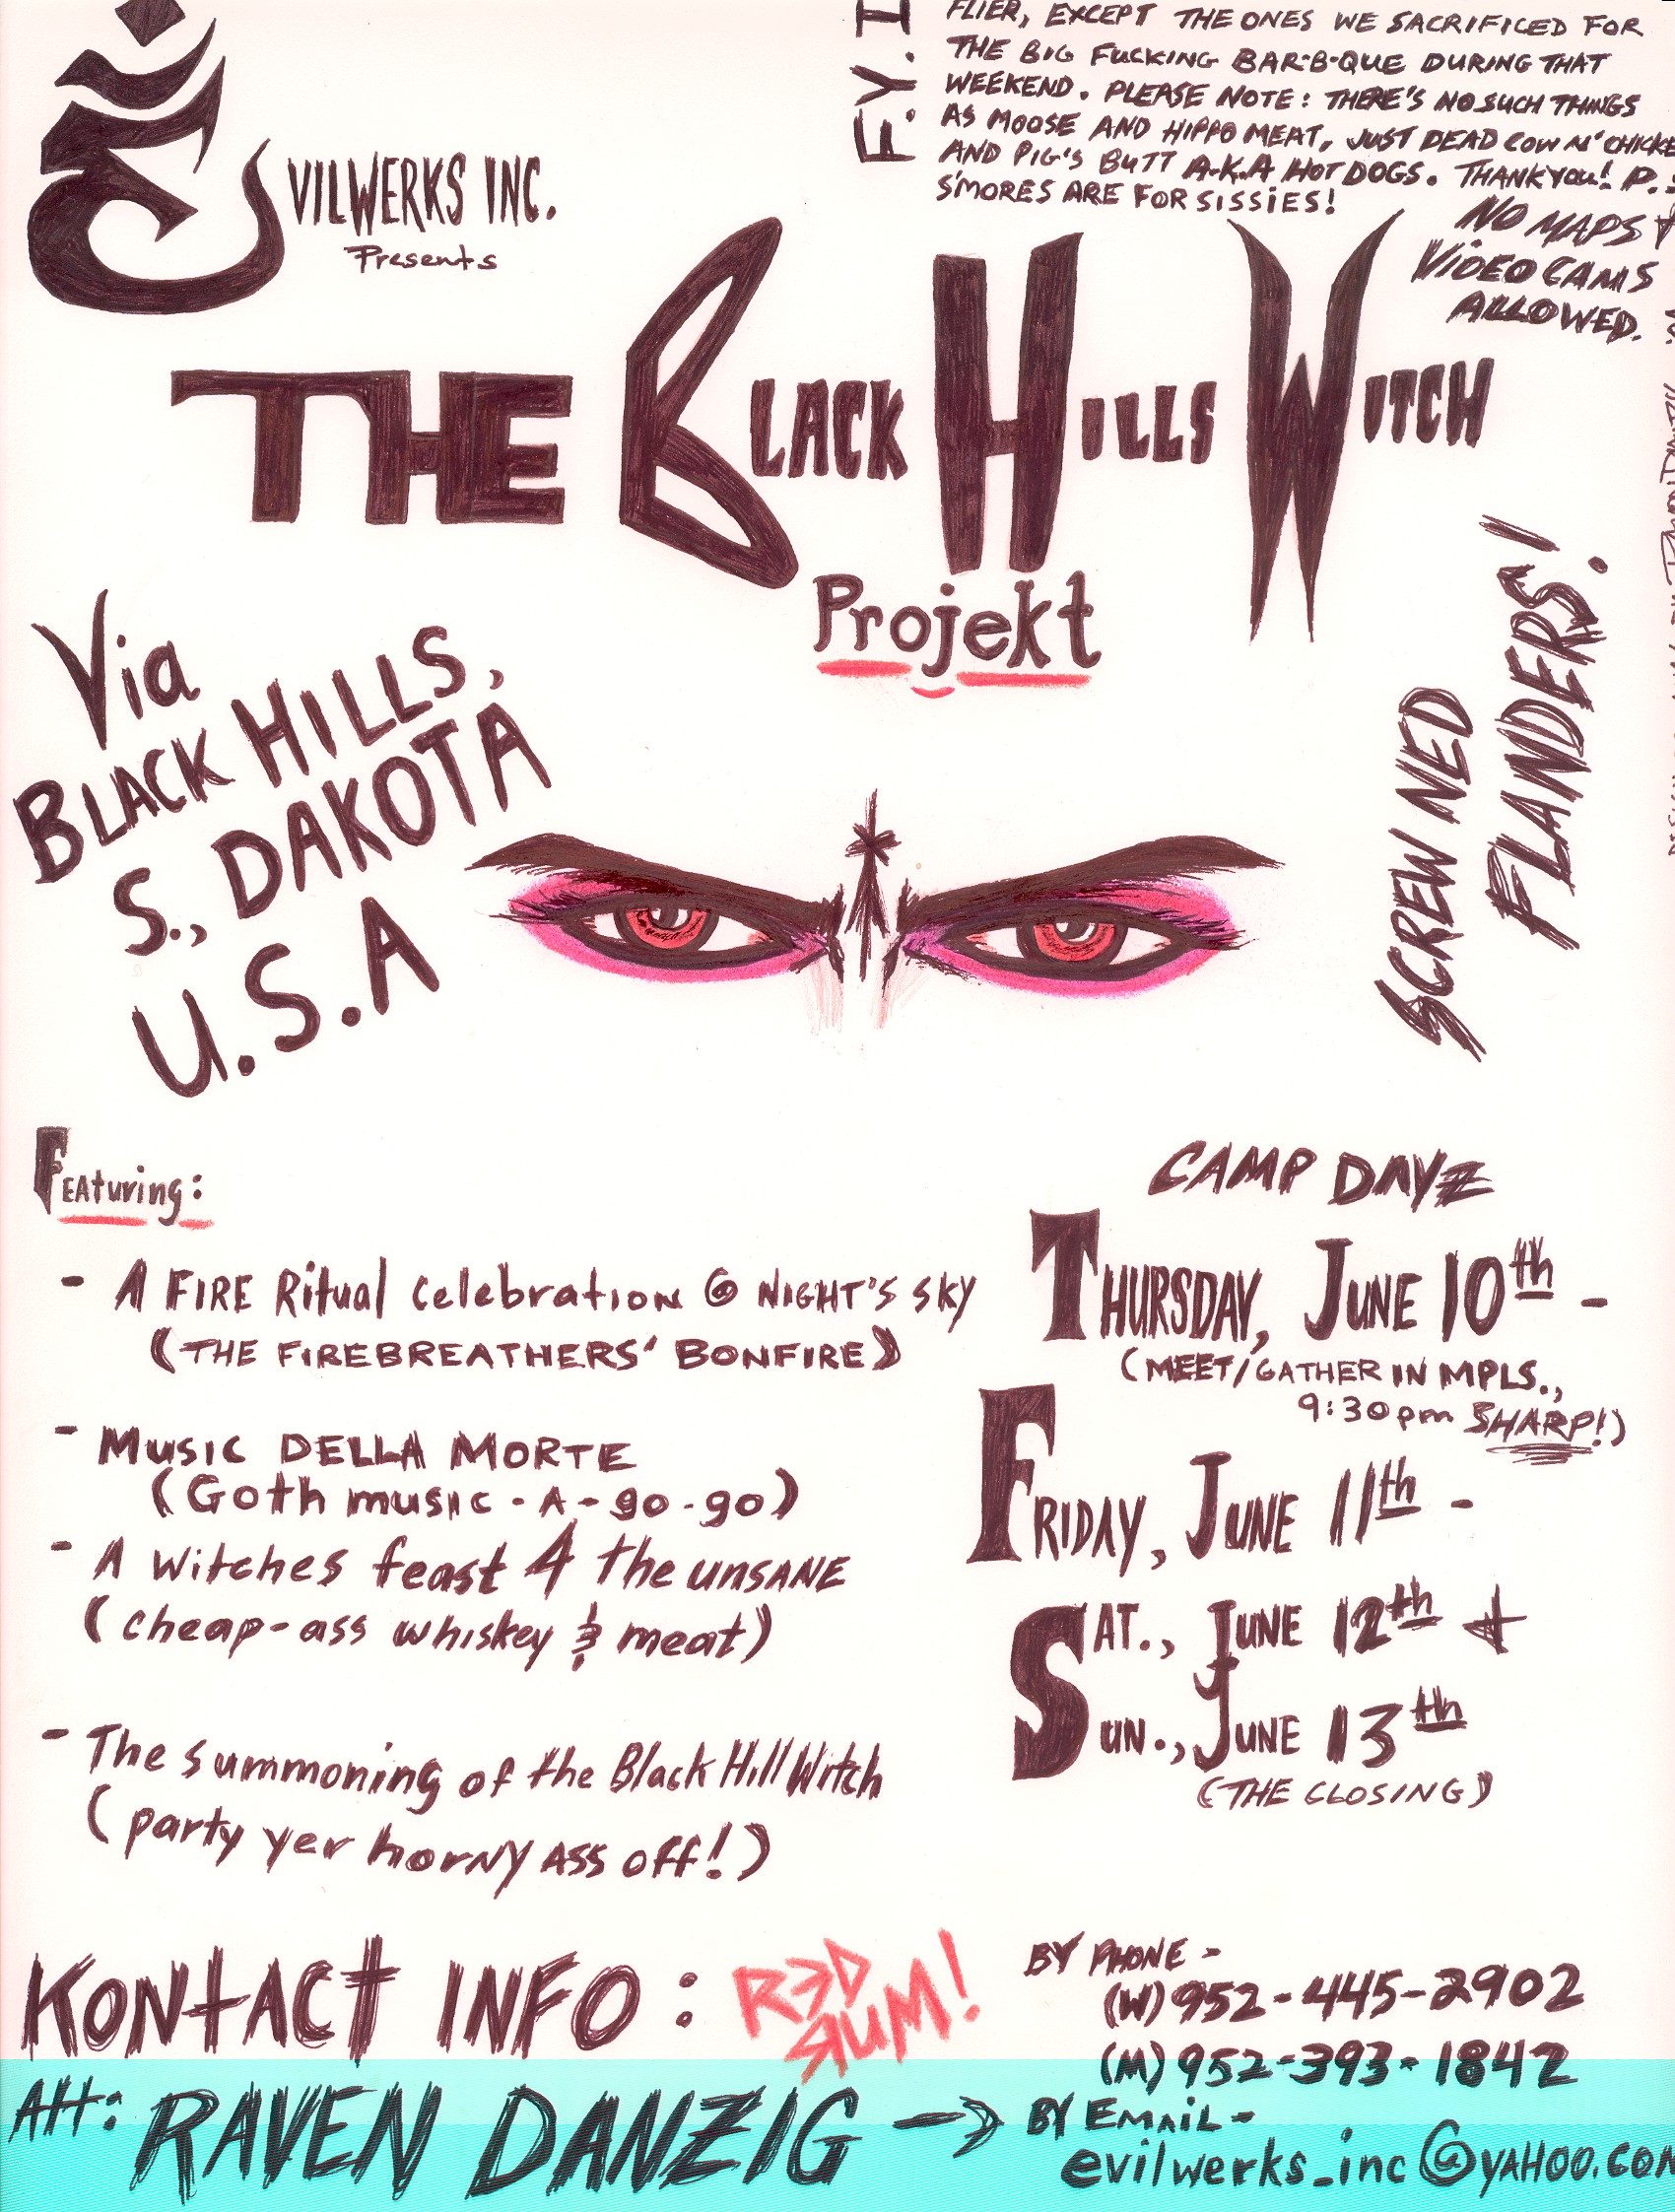 F.Y.I
FLIER, EXCEPT THE ONES WE SACRIFICED FOR
THE BIG FUCKING BAR-B-QUE DURING THAT
WEEKEND. PLEASE NOTE: THERE'S NO SUCH THINGS
AS MOOSE AND HIPPO MEAT, JUST DEAD COW N' CHICKE
AND PIG'S BUTT A.K.A HOT DOGS. THANK YOU! P.S
S'MORES ARE FOR SISSIES!
NO MAPS &
VIDEO CAMS
ALLOWED.
EVILWERKS INC.
Presents
THE BLACK HILLS WITCH
Projekt
Via
BLACK HILLS,
S., DAKOTA
U.S.A
SCREW NED
FLANDERS!
Featuring:
- A FIRE Ritual Celebration @ NIGHT'S SKY
(THE FIREBREATHERS' BONFIRE)
- MUSIC DELLA MORTE
(Goth music-A-go-go)
- A Witches feast 4 The UNSANE
(cheap-ass whiskey & meat)
- The summoning of the Black Hill Witch
(party yer horny ASS off!)
CAMP DAYZ
THURSDAY, JUNE 10th -
(MEET/GATHER IN MPLS.,
9:30pm SHARP!)
FRIDAY, JUNE 11th -
SAT., JUNE 12th &
SUN., JUNE 13th
(THE CLOSING)
KONTACT INFO:
RED
RUM!
BY PHONE -
(W) 952-445-2902
(M) 952-393-1842
Att: RAVEN DANZIG ->
BY EMAIL -
evilwerks_inc@YAHOO.COM